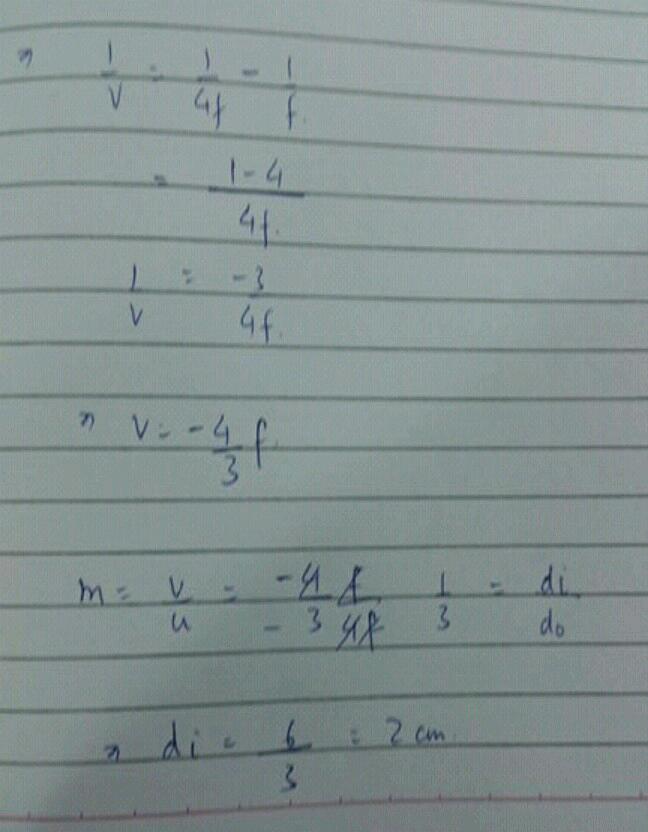 ⇒ 1/v = 1/4f - 1/f.
= (1-4)/4f.
1/v = -3/4f.
⇒ v = -4/3 f.
m = v/u = -4f/-3 4f 1/3 = di/do
⇒ di = 6/3 = 2 cm.